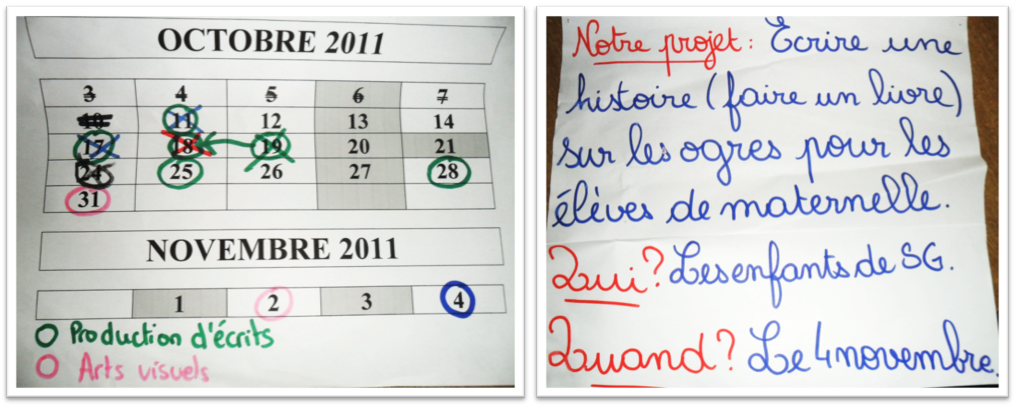 OCTOBRE 2011
3 4 5 6 7
10 11 12 13 14
17 18 19 20 21
24 25 26 27 28
31
NOVEMBRE 2011
1 2 3 4
Production d'écrits
Arts visuels
Notre projet : Ecrire une
histoire (faire un livre)
sur les ogres pour les
élèves de maternelle.
Qui ? Les enfants de SG.
Quand ? Le 4 novembre.